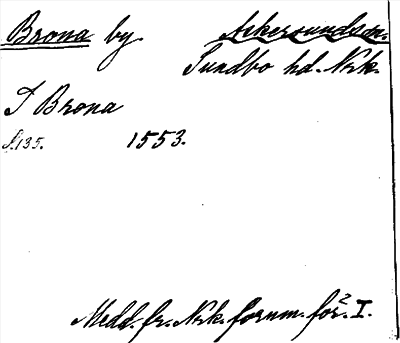 Brona by. Askersundsn.
Sundbo hd. Nrk.
I Brona
S. 135. 1553.
Medd. fr. Nrk. fornm. för.² I.